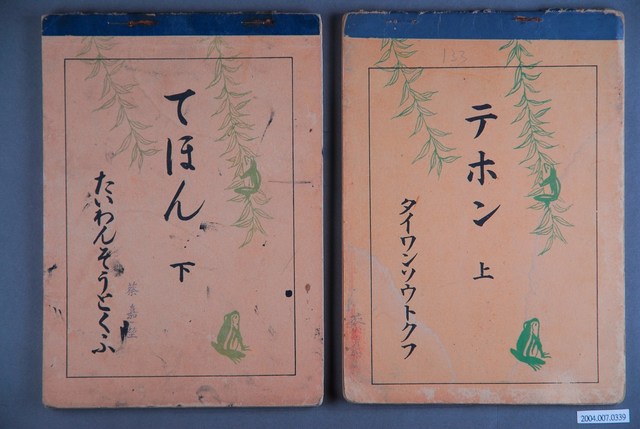 てほん
下
たいわんそうとくふ
蔡嘉
133
テホン
上
タイワンソウトクフ
2004.007.0339